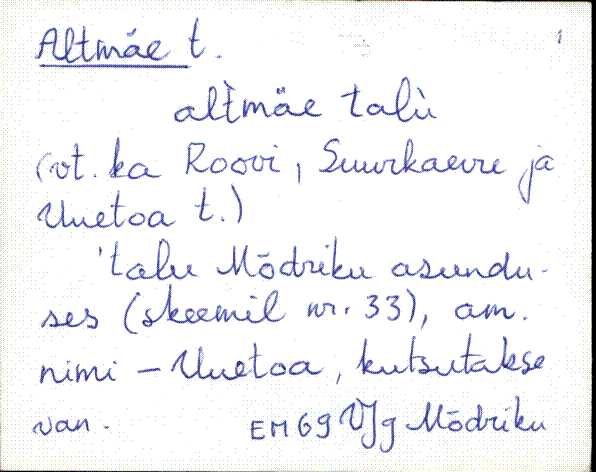 Altmäe t. 1
alt̀mäe talù
(vt. ka Roovi, Suurkaevu ja
Uuetoa t.)
'talu Mõdriku asundu-
ses (skeemil nr. 33), am.
nimi – Uuetoa, kutsutakse
van. EM69 VJg Mõdriku